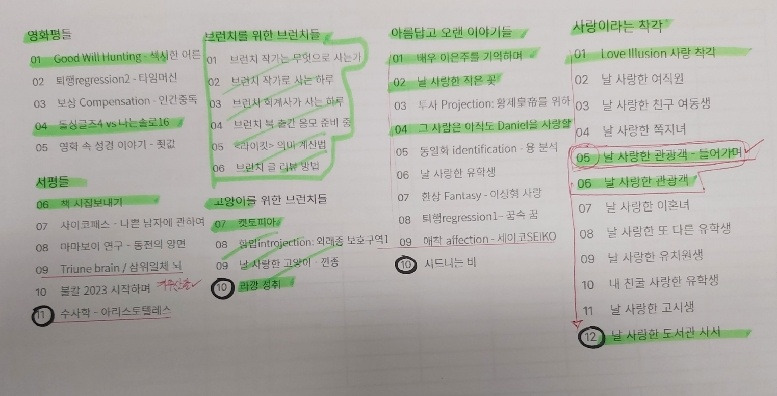 영화평들
01 Good Will Hunting - 섹시한 어른
02 퇴행regression2 - 타임머신
03 보상 Compensation - 인간중독
04 돌싱글즈4 vs 나는솔로16
05 영화 속 성경 이야기 - 죗값
서평들
06 책 시집보내기
07 사이코패스 - 나쁜 남자에 관하여
08 마마보이 연구 - 동전의 양면
09 Triune brain / 삼위일체 뇌
10 불칼 2023 시작하며
11 수사학 - 아리스토텔레스
브런치를 위한 브런치들
01 브런치 작가는 무엇으로 사는가
02 브런치 작가로 사는 하루
03 브런치 회계사가 사는 하루
04 브런치 북 출간 응모 준비 중
05 <라이킷> 의미 계산법
06 브런치 글 리뷰 방법
고양이를 위한 브런치들
07 캣토피아
08 함입introjection: 외래종 보호구역1
09 날 사랑한 고양이 - 낀종
10 라깡 정취
아름답고 오랜 이야기들
01 배우 이은주를 기억하며
02 날 사랑한 작은 꽃
03 투사 Projection: 황제皇帝를 위하
04 그 사람은 아직도 Daniel을 사랑할
05 동일화 identification - 융 분석
06 날 사랑한 유학생
07 환상 Fantasy - 이상형 사랑
08 퇴행regression1 - 꿈속 꿈
09 애착 affection - 세이코SEIKO
10 시드니는 비
사랑이라는 착각
01 Love Illusion 사랑 착각
02 날 사랑한 여직원
03 날 사랑한 친구 여동생
04 날 사랑한 쪽지녀
05 날 사랑한 관광객 - 들어가며
06 날 사랑한 관광객
07 날 사랑한 이혼녀
08 날 사랑한 또 다른 유학생
09 날 사랑한 유치원생
10 내 친굴 사랑한 유학생
11 날 사랑한 고시생
12 날 사랑한 도서관 사서